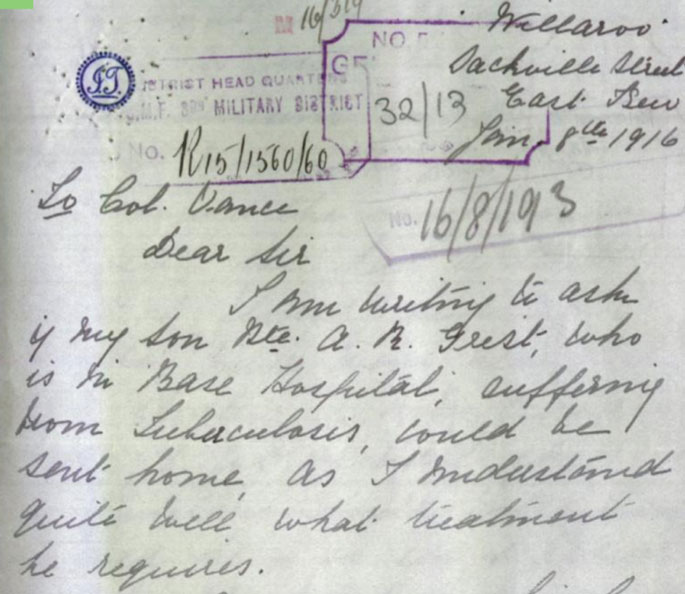 M 16/
Willaroo
NO.
Sackville Street
DISTRICT HEAD QUARTERS
32/13
East Kew
MILITARY DISTRICT
Jan. 8th 1916
No. R15/1560/60
No. 16/8/193
To Col. Vance
Dear Sir
I am writing to ask
if my son Pte. A. R. Grist, who
is in Base Hospital, suffering
from Tuberculosis, could be
sent home, as I understand
quite well what treatment
he requires.